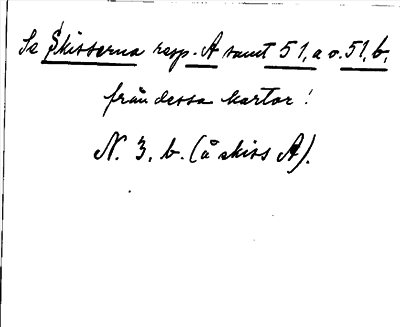 Se Skisserna resp. A samt 51, a o. 51, b,
från dessa kartor!
N. 3, b. (å skiss A).